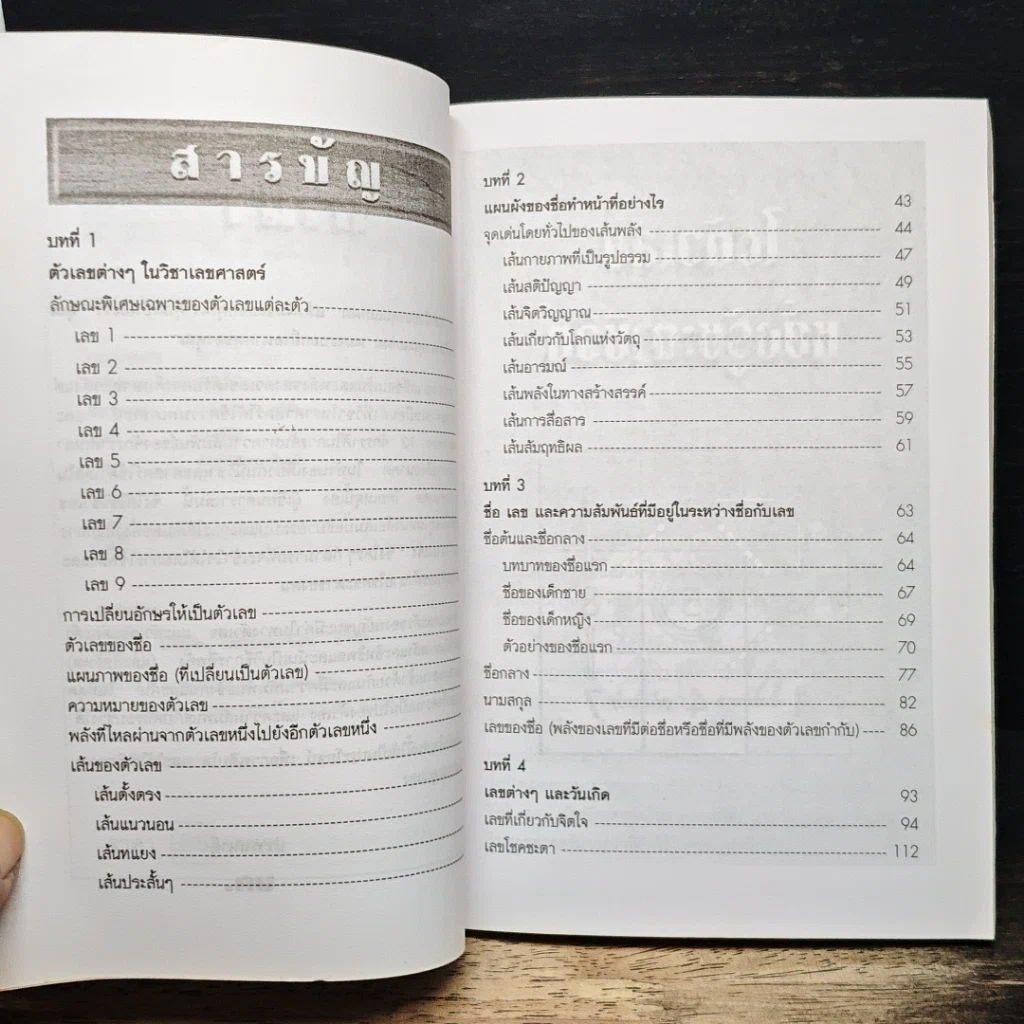 สารบัญ
บทที่ 1
ตัวเลขต่างๆ ในวิชาเลขศาสตร์
ลักษณะพิเศษเฉพาะของตัวเลขแต่ละตัว
เลข 1
เลข 2
เลข 3
เลข 4
เลข 5
เลข 6
เลข 7
เลข 8
เลข 9
การเปลี่ยนอักษรให้เป็นตัวเลข
ตัวเลขของชื่อ
แผนภาพของชื่อ (ที่เปลี่ยนเป็นตัวเลข)
ความหมายของตัวเลข
พลังที่ไหลผ่านจากตัวเลขหนึ่งไปยังอีกตัวเลขหนึ่ง
เส้นของตัวเลข
เส้นตั้งตรง
เส้นแนวนอน
เส้นทแยง
เส้นประสั้นๆ
บทที่ 2
แผนผังของชื่อทำหน้าที่อย่างไร 43
จุดเด่นโดยทั่วไปของเส้นพลัง 44
เส้นกายภาพที่เป็นรูปธรรม 47
เส้นสติปัญญา 49
เส้นจิตวิญญาณ 51
เส้นเกี่ยวกับโลกแห่งวัตถุ 53
เส้นอารมณ์ 55
เส้นพลังในทางสร้างสรรค์ 57
เส้นการสื่อสาร 59
เส้นสัมฤทธิผล 61
บทที่ 3
ชื่อ เลข และความสัมพันธ์ที่มีอยู่ในระหว่างชื่อกับเลข 63
ชื่อต้นและชื่อกลาง 64
บทบาทของชื่อแรก 64
ชื่อของเด็กชาย 67
ชื่อของเด็กหญิง 69
ตัวอย่างของชื่อแรก 70
ชื่อกลาง 77
นามสกุล 82
เลขของชื่อ (พลังของเลขที่มีต่อชื่อหรือชื่อที่มีพลังของตัวเลขกำกับ) 86
บทที่ 4
เลขต่างๆ และวันเกิด 93
เลขที่เกี่ยวกับจิตใจ 94
เลขโชคชะตา 112